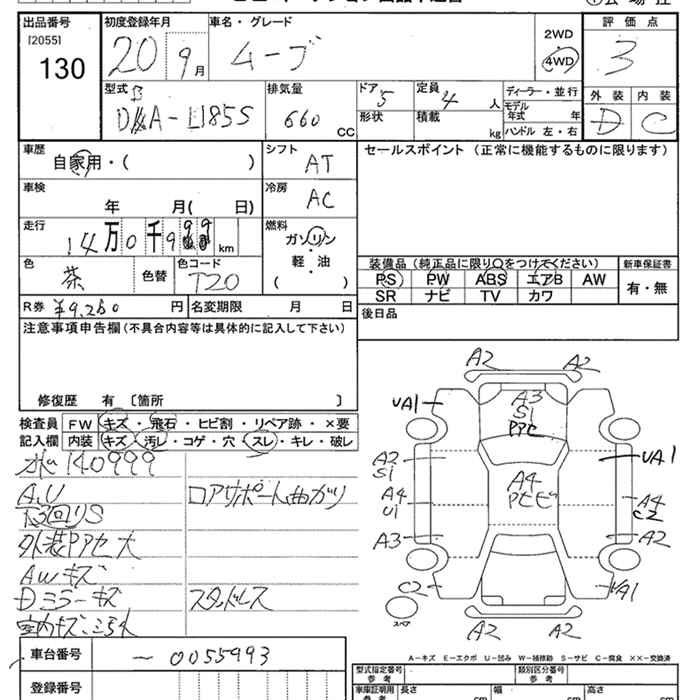 出品番号
[2055]
130
初度登録年月
20 9月
車名・グレード
ムーブ
2WD
4WD
評価点
3
外装 内装
D C
型式
排気量
660 CC
ドア
5
定員
4 人
ディーラー・並行
モデル
年式 年
形状
積載
kg
ハンドル 左・右
車歴
自家用・( )
シフト
AT
セールスポイント (正常に機能するものに限ります)
車検
年 月( 日)
冷房
AC
走行
14万0千999km
燃料
ガソリン
軽・油
( )
色
茶
色替
色コード
T20
装備品 (純正品に限り○をつけてください)
PS PW ABS エアB AW
SR ナビ TV カワ
新車保証書
有・無
R券 ¥9,260 円
名変期限 月 日
後日品
注意事項申告欄 (不具合内容等は具体的に記入して下さい)
修復歴 有 〔箇所 〕
検査員
記入欄
FW キズ・飛石・ヒビ割・リペア跡・×要
内装 キズ・汚レ・コゲ・穴・スレ・キレ・破レ
140999
A,U
コアサポート曲がり
下回りS
外装PアセE大
AWキズ
Dミラーキズ
スタッドレス
室内キズ
車台番号
- 0055993
登録番号
A2 A2
UA1
A3
S1
Pアセ
A2
S1
UA1
A4
U1
A4
Pビビ
A4
C2
A3
A2
C2
UA1
スペア
A2 A2
A-キズ E-エクボ U-凹み W-補修跡 S-サビ C-腐食 XX-交換済
型式指定番号
参考
類別区分番号
参考
車庫証明用
参考
長さ cm
幅 cm
高さ cm